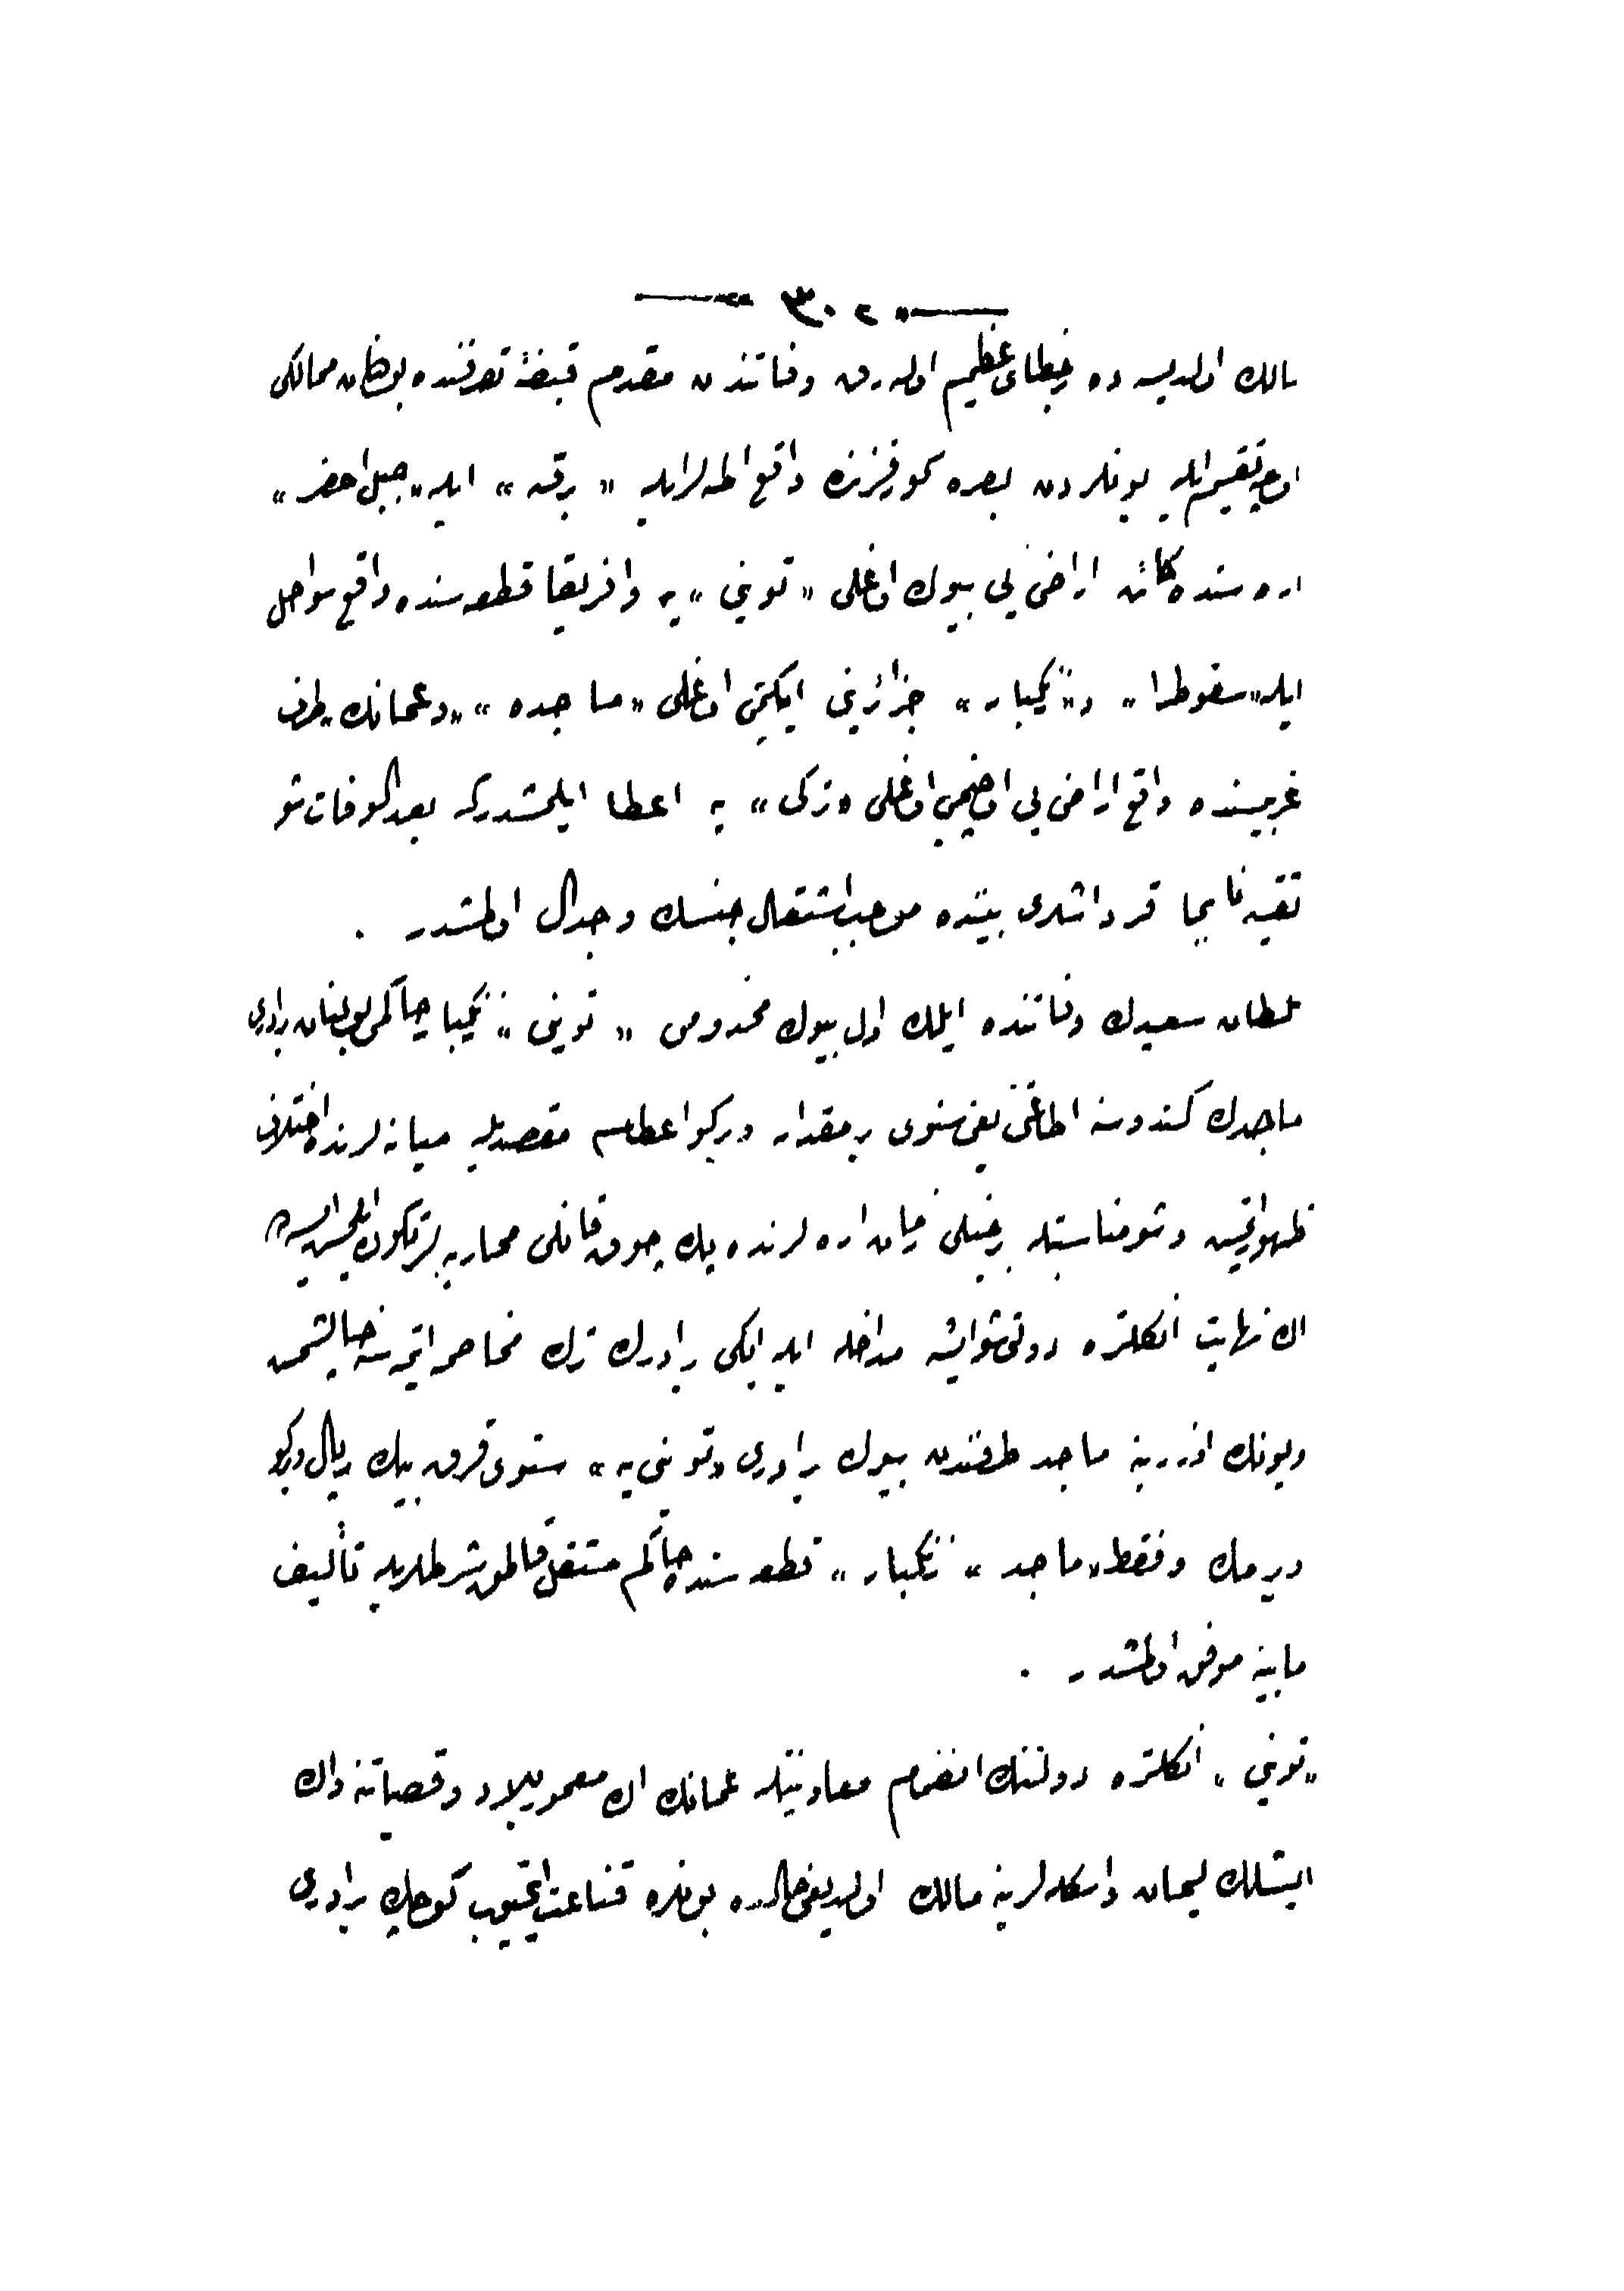 — ٣٠٢ —
مالك اولديسه ده خطای عظيم اوله رق وفاتندن مقدم قبضهٔ تصرفنده بولنان ممالكی
اوچه تقسيم ايله بونلردن بصره كورفزنده واقع اطه لرايله « برقه » ايله « جبل اخضر »
اره سنده كائن اراضی يی بيوك اوغلی « توينی » يه و افريقا قطعه سنده واقع سواحل
ايله « سقوطرا » و « زنكبار » جزائرينی ايكنجی اوغلی « ماجده » و « عمانك » طرف
غربيسنده واقع اراضی يی اوچنجی اوغلی « تركی » يه اعطا ايلمشدركه بعد الوفات شو
تقسيم قارداشلری بيننده موجب اشتعال جنك وجدال اولمشدر .
سلطان سعيدك وفاتنده ايلك اول بيوك مخدومی « توينی » زنكبار حاكمی بولنان برادری
ماجدك كندوسنه اطاعتنی يعنی سنوی بر مقدار ويركو اعطاسی مقصديله ميانه لرنده اختلاف
ظهور ايتمش و شو مناسبتله بر خيلی زمان اره لرنده پك چوق قانلی محاربه لر تكون ايلمش ايسه ده
اك نهايت انكلتره دولتی شو ايشه مداخله ايله ايكی برادرك ترك مخاصمه ايتمه سنه چاليشمش
وبونك اوزرينه ماجد طرفندن بيوك برادری « توينی يه » سنوی قرق بيك ريال ويركو
ويرمك و فقط « ماجد » « زنكبار » قطعه سنده حاكم مستقل قالمق شرطلريله تأليف
مابينه موفق اولمشدر .
« توينی » انكلتره دولتنك انضمام معاونتيله عمانك اك معمور بلاد و قصباتنه و اك
ايشلك ليمان و اسكله لرينه مالك اولديغی حالده بونلره قناعت ايتميوب كوچك برادری